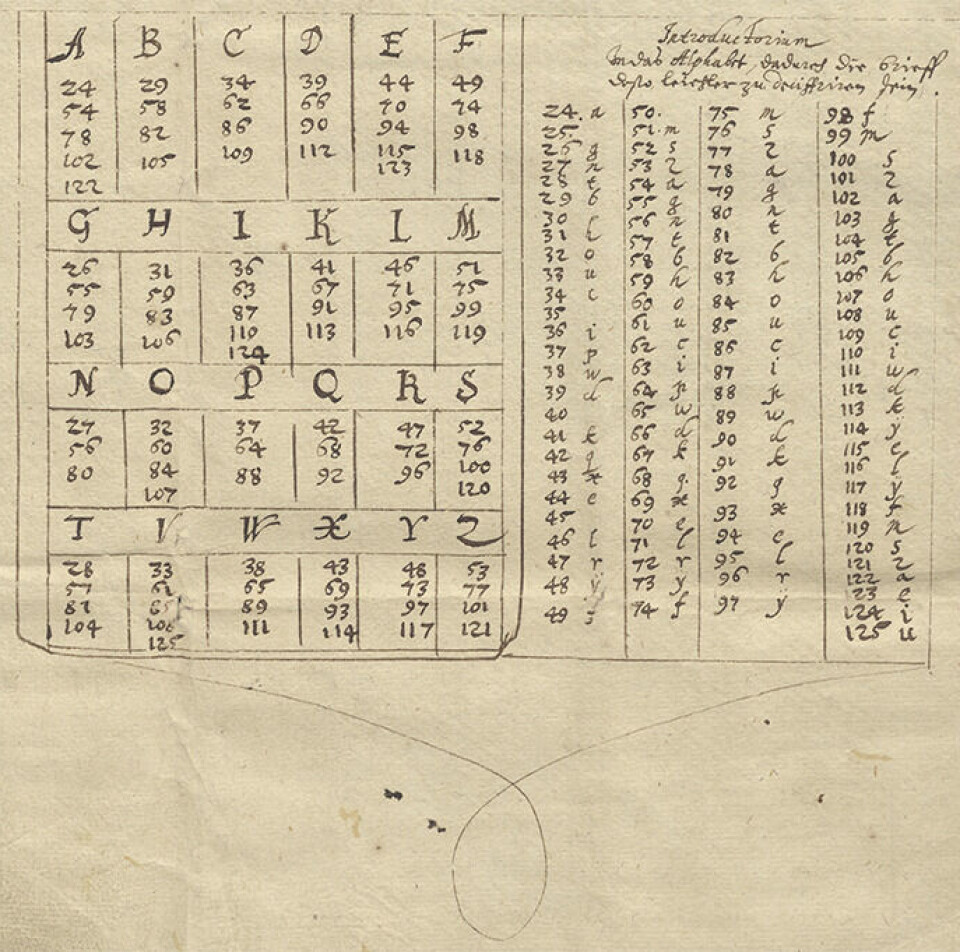 A B C D E F
24 29 34 39 44 49
54 58 62 66 70 74
78 82 86 90 94 98
102 105 109 112 115 118
122 123
G H I K L M
26 31 36 41 46 51
55 59 63 67 71 75
79 83 87 91 95 99
103 106 110 113 116 119
124
N O P Q R S
27 32 37 42 47 52
56 60 64 68 72 76
80 84 88 92 96 100
107 120
T V W X Y Z
28 33 38 43 48 53
57 61 65 69 73 77
81 89 93 97 101
104 111 114 117 121
125
Introductorium
In das Alphabet, dadurch die brieff
desto leichter zu deciffriren sein.
24. a
25.
26 g
27 n
28 t
29 b
30
31 h
32 o
33 u
34 c
35
36 i
37 p
38 w
39 d
40
41 k
42 q
43 x
44 e
45
46 l
47 r
48 ÿ
49
50.
51. m
52 s
53 z
54 a
55 g
56 n
57 t
58 b
59 h
60 o
61 u
62 c
63 i
64 p
65 w
66 d
67 k
68 q.
69 x
70 e
71 l
72 r
73 y
74 f
75 m
76 s
77 z
78 a
79 g
80 n
81 t
82 b
83 h
84 o
85 u
86 c
87 i
88 p
89 w
90 d
91 k
92 q
93 x
94 e
95 l
96 r
97 ÿ
98 f
99 m
100 s
101 z
102 a
103 g
104 t
105 b
106 h
107 o
108 u
109 c
110 i
111 w
112 d
113 k
114 ÿ
115 e
116 l
117 ÿ
118 f
119 n
120 s
121 z
122 a
23 e
124 i
125 u